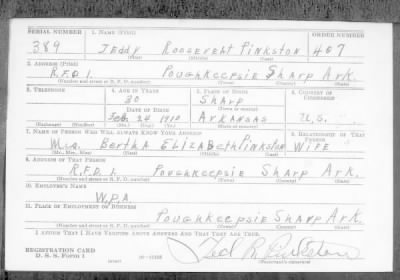 SERIAL NUMBER 1. NAME (Print) ORDER NUMBER
389 TEDDY ROOSEVELT PINKSTON 407
(First) (Middle) (Last)
2. ADDRESS (Print)
R.F.D 1. Poughkeepsie Sharp Ark.
(Number and street or R. F. D. number) (Town) (County) (State)
3. TELEPHONE 4. AGE IN YEARS 5. PLACE OF BIRTH 6. COUNTRY OF CITIZENSHIP
30 Sharp
DATE OF BIRTH (Town or county)
Feb. 24 1910 Arkansas U.S.
(Exchange) (Number) (Mo.) (Day) (Yr.) (State or country)
7. NAME OF PERSON WHO WILL ALWAYS KNOW YOUR ADDRESS 8. RELATIONSHIP OF THAT PERSON
Mrs. Bertha Elizabeth Pinkston Wife
(Mr., Mrs., Miss) (First) (Middle) (Last)
9. ADDRESS OF THAT PERSON
R.F.D. 1. Poughkeepsie Sharp Ark.
(Number and street or R. F. D. number) (Town) (County) (State)
10. EMPLOYER'S NAME
W.P.A.
11. PLACE OF EMPLOYMENT OR BUSINESS
Poughkeepsie Sharp Ark
(Number and street or R. F. D. number) (Town) (County) (State)
I AFFIRM THAT I HAVE VERIFIED ABOVE ANSWERS AND THAT THEY ARE TRUE.
REGISTRATION CARD
D. S. S. Form 1 (over) Ted R Pinkston
(Registrant's signature)